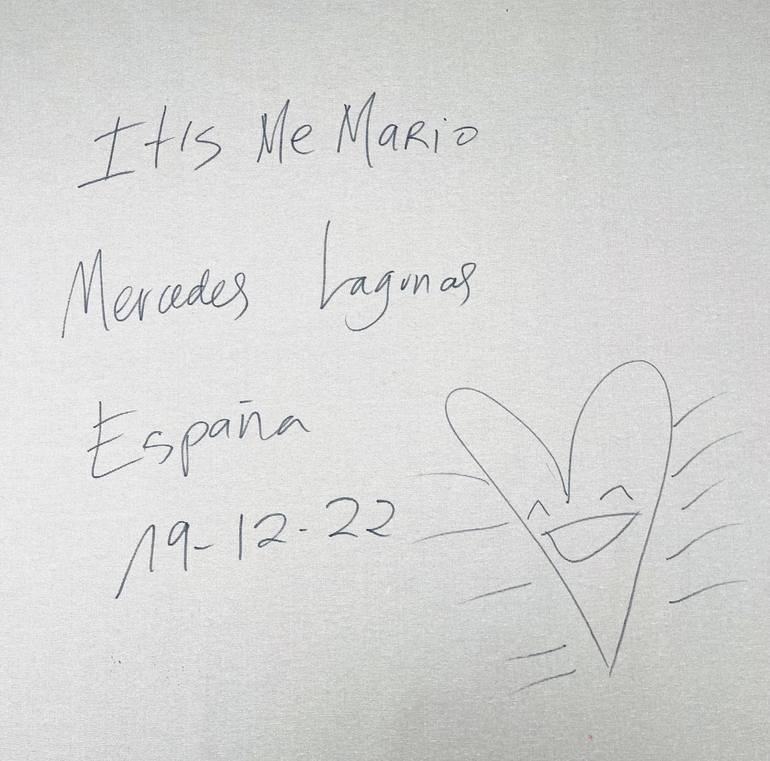 It is Me Mario
Mercedes Lagunas
España
19-12-22